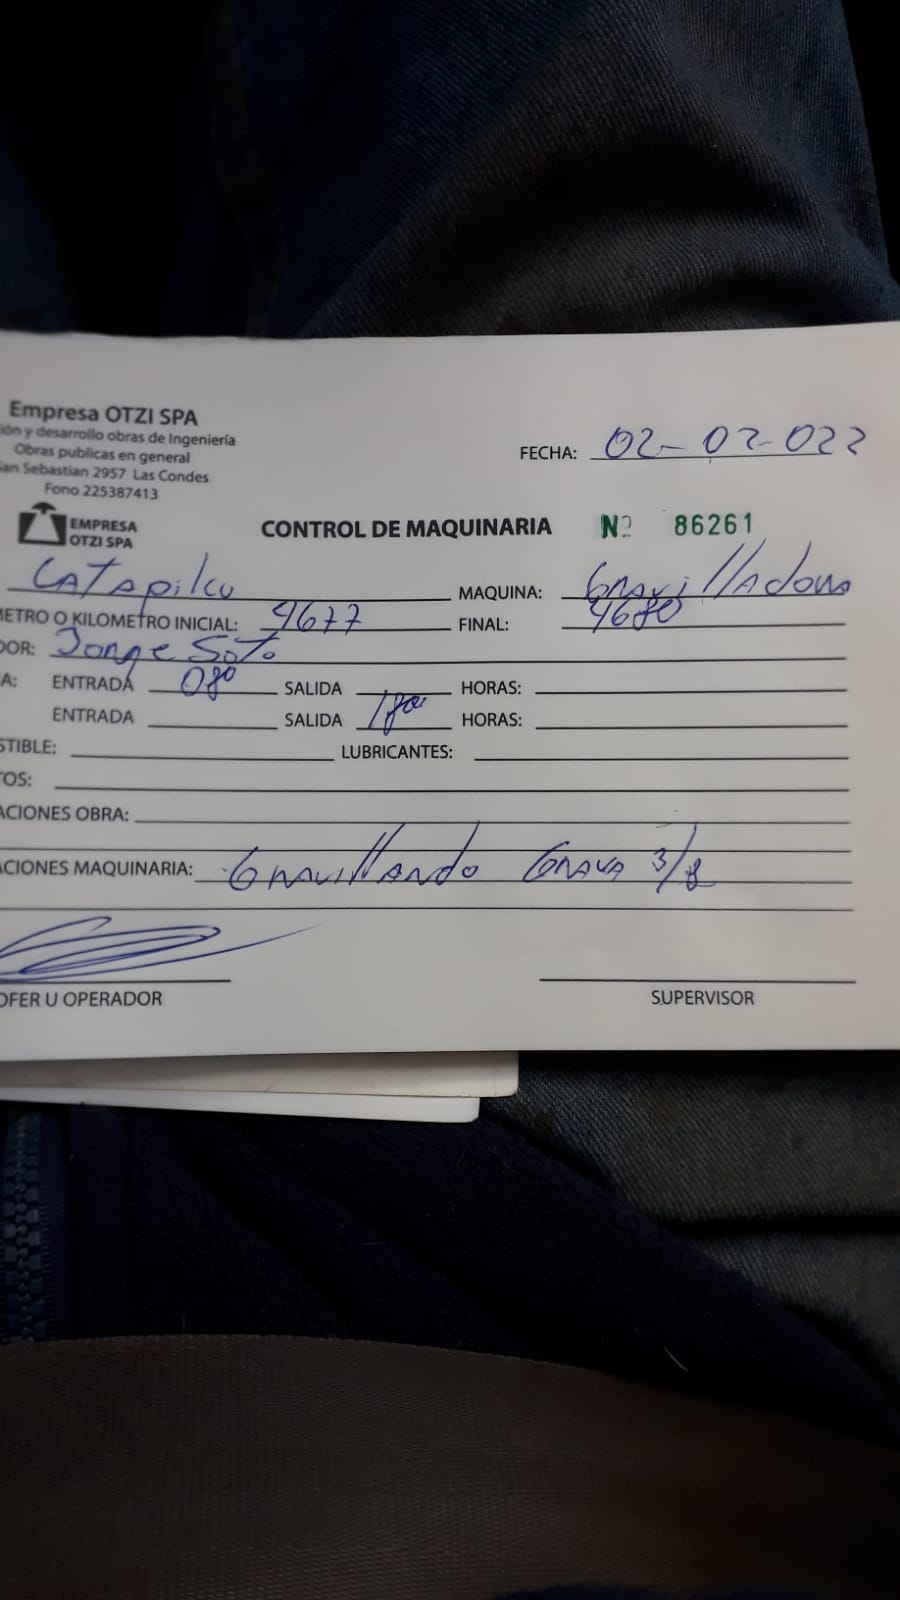 Empresa OTZI SPA
ión y desarrollo obras de Ingeniería
Obras publicas en general
an Sebastian 2957 Las Condes
Fono 225387413
FECHA: 02-02-022
EMPRESA
OTZI SPA
CONTROL DE MAQUINARIA Nº 86261
CATApilco MAQUINA: GRAvillAdora
METRO O KILOMETRO INICIAL: 4677 FINAL: 4680
DOR: Jorge Soto
A: ENTRADA 08⁰⁰ SALIDA HORAS:
ENTRADA SALIDA 18⁰⁰ HORAS:
STIBLE: LUBRICANTES:
TOS:
ACIONES OBRA:
ACIONES MAQUINARIA: GRAvillANdo GRAVA 3/8
OFER U OPERADOR SUPERVISOR